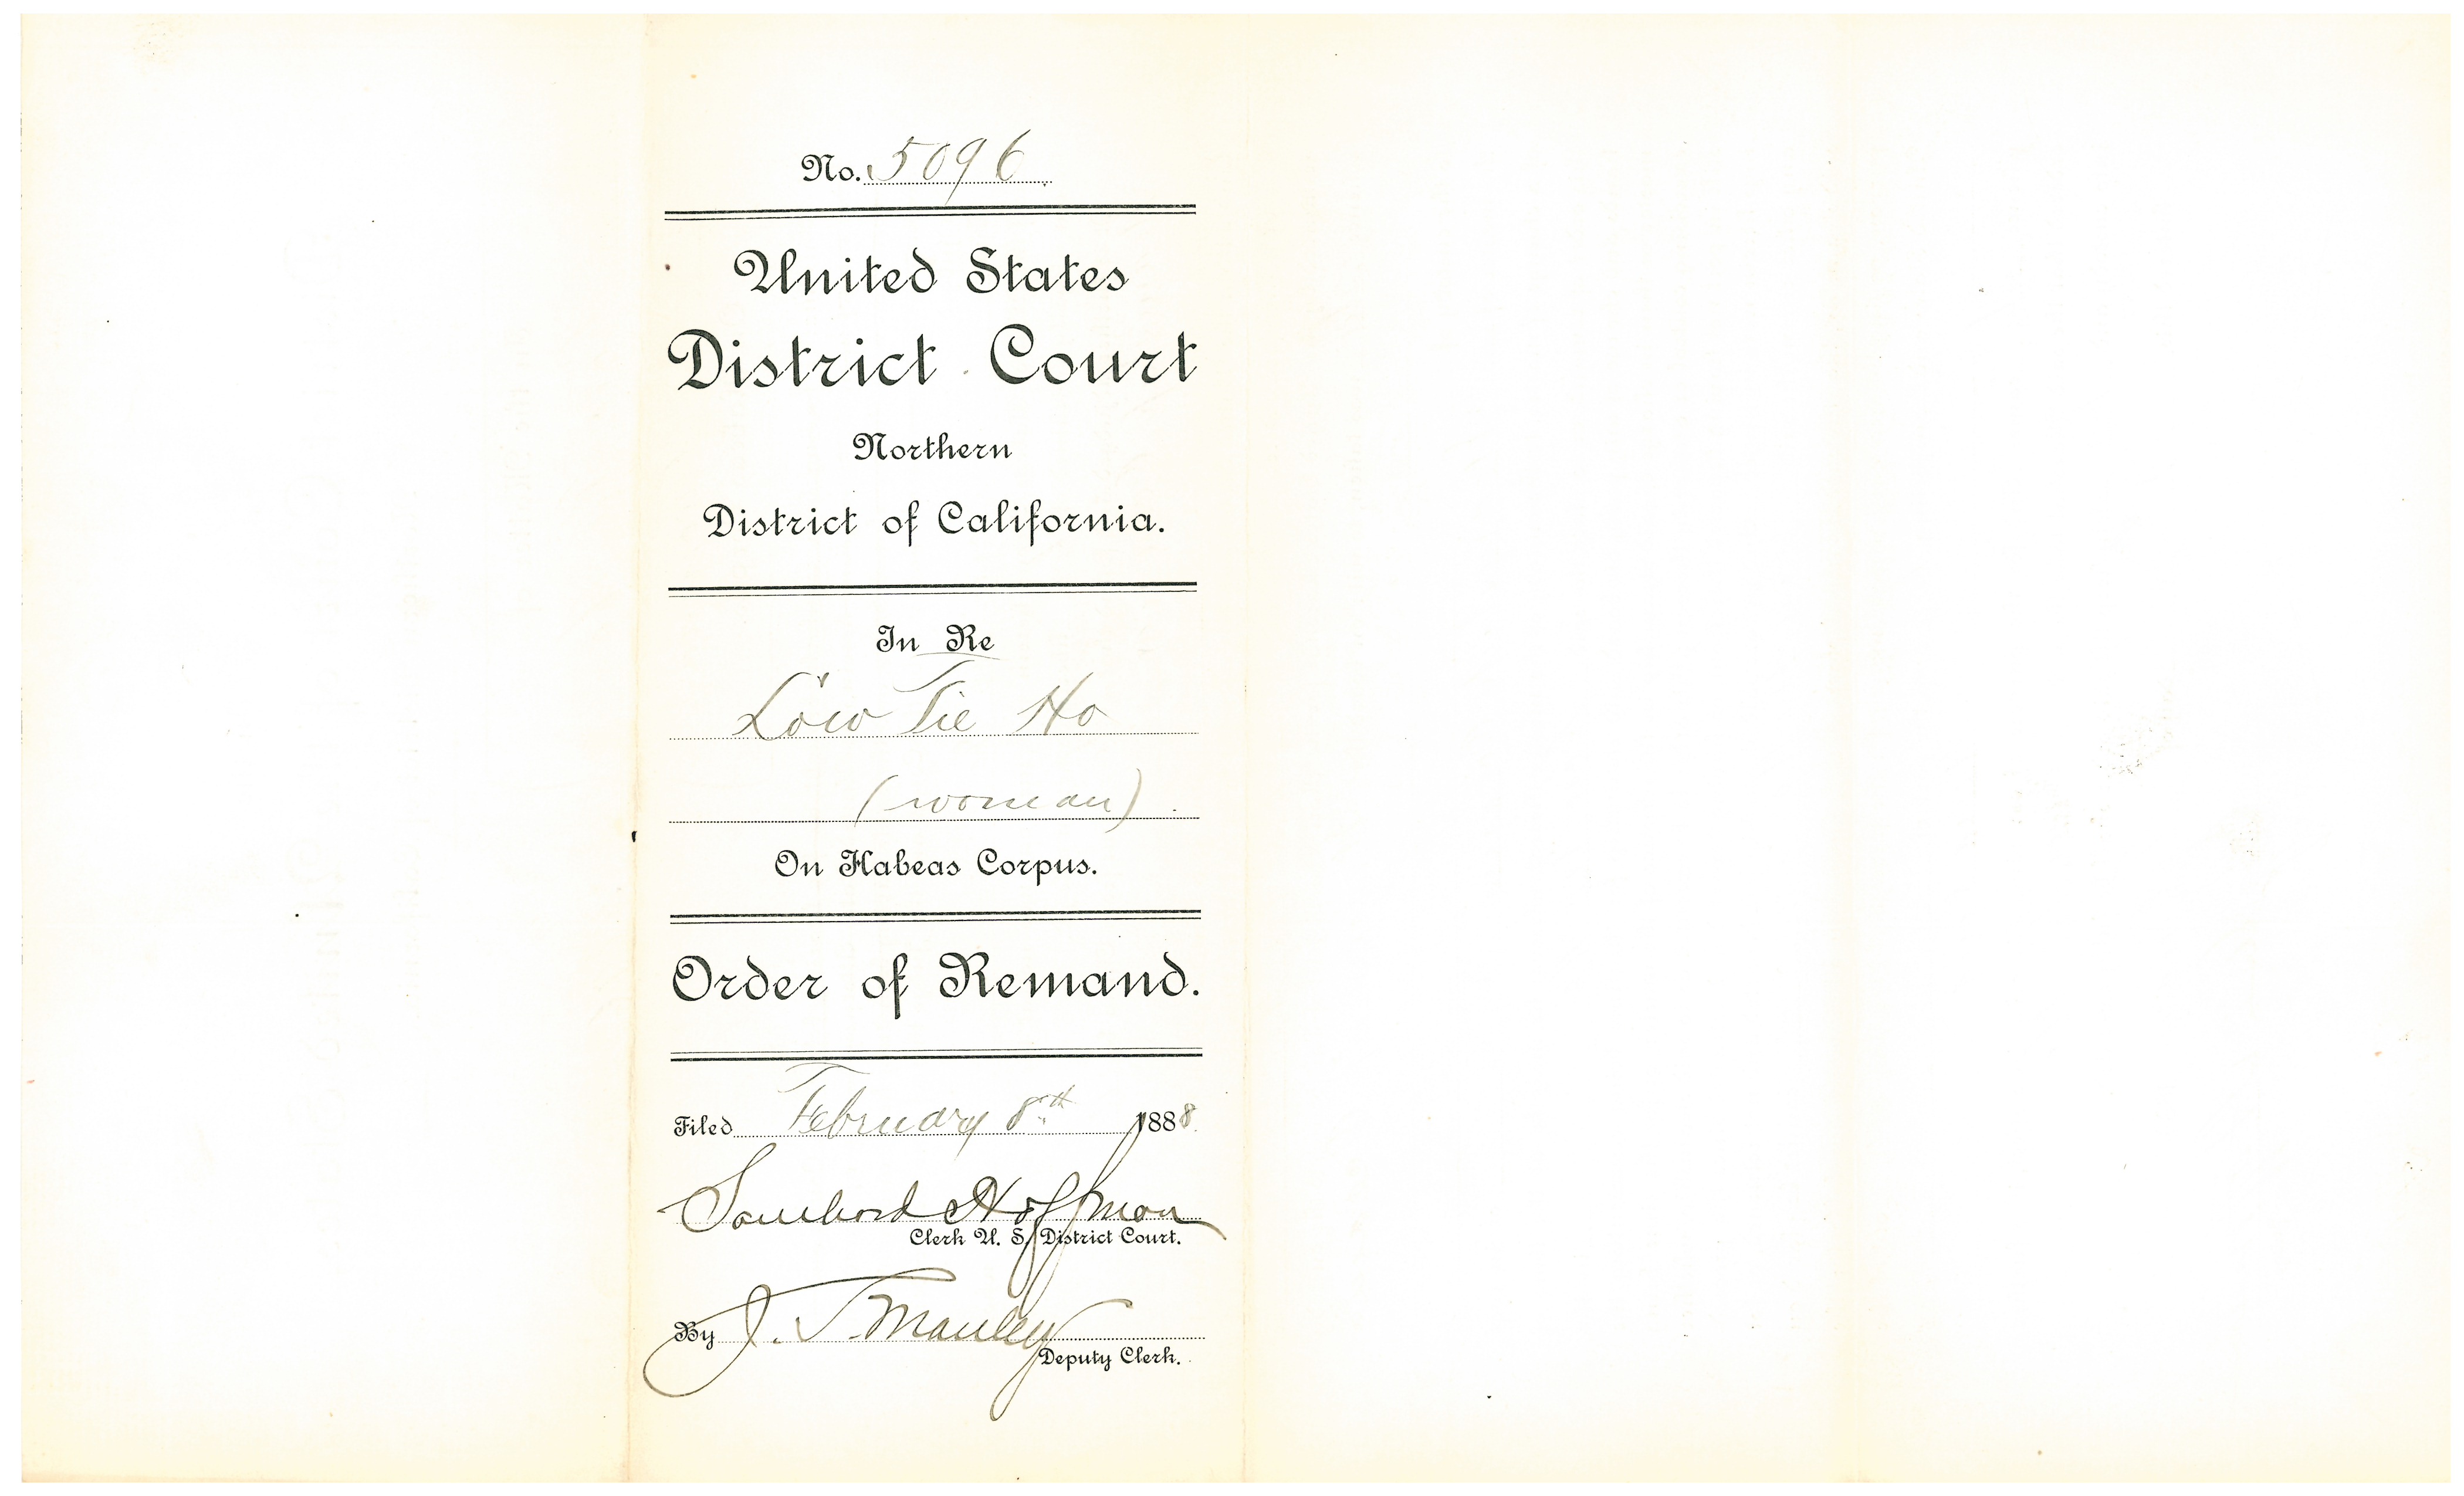 No. 5096
United States
District Court
Northern
District of California.
In Re
Low Tie Ho
(woman)
On Habeas Corpus.
Order of Remand.
Filed February 8th 1888
Southard Hoffman
Clerk U. S. District Court.
By J. S. Manley
Deputy Clerk.